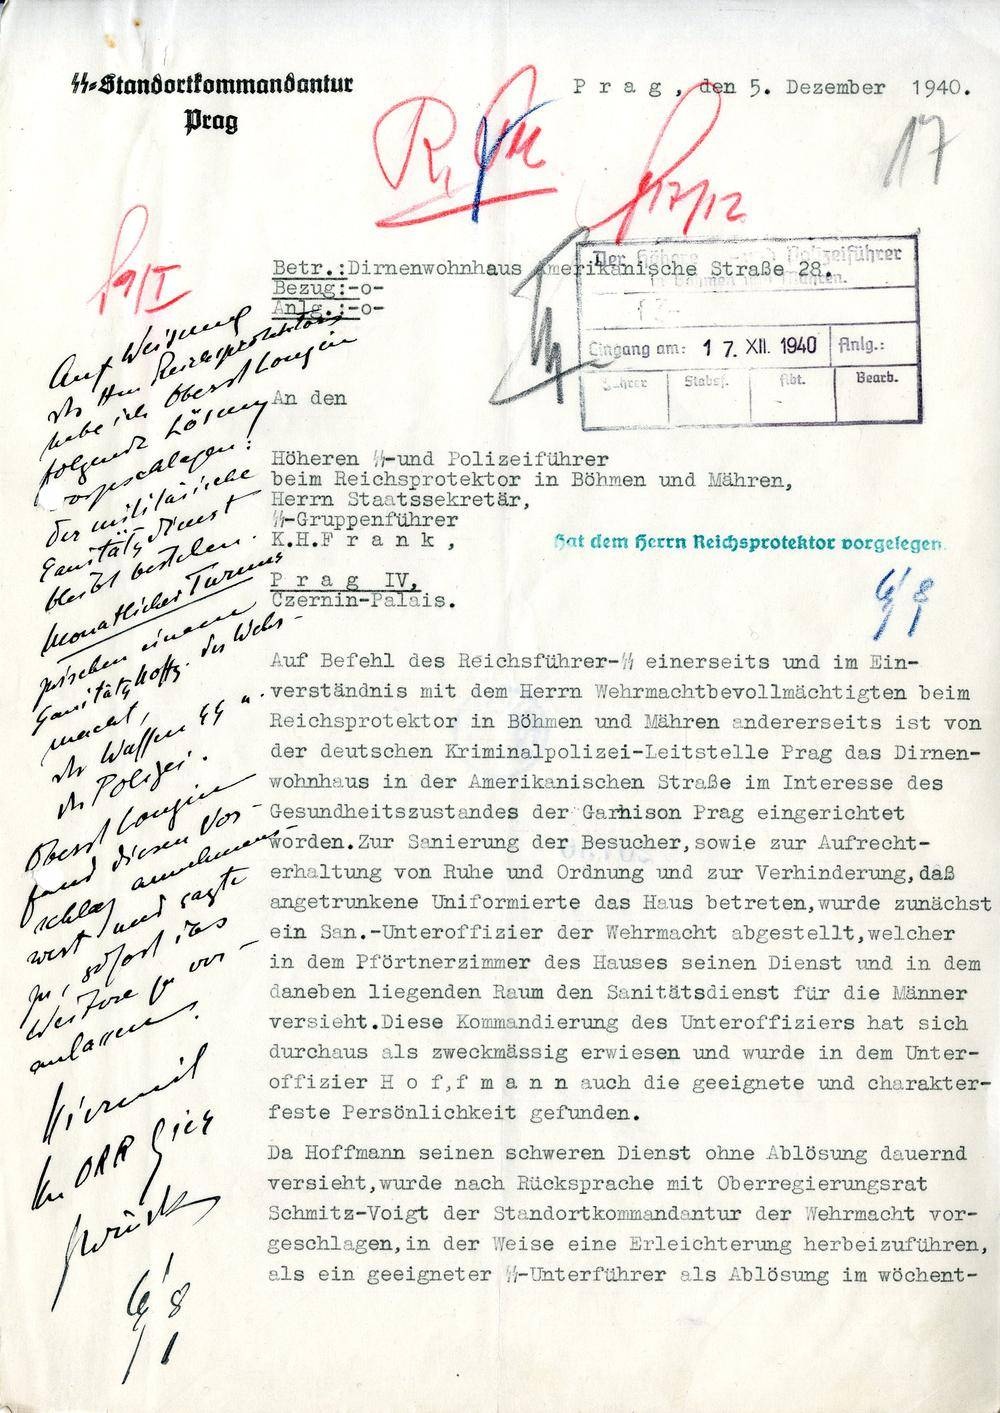 ᛋᛋ-Standortkommandantur
Prag
P r a g , den 5. Dezember 1940.
17
17/12
9/I
Betr.:Dirnenwohnhaus Amerikanische Straße 28.
Bezug:-o-
Anlg.:-o-
Der Höhere ᛋᛋ- und Polizeiführer
in Böhmen und Mähren.
Eingang am: 17. XII. 1940 Anlg.:
Führer Stabsf. Abt. Bearb.
An den
Höheren ᛋᛋ-und Polizeiführer
beim Reichsprotektor in Böhmen und Mähren,
Herrn Staatssekretär,
ᛋᛋ-Gruppenführer
K.H.F r a n k ,
P r a g IV,
Czernin-Palais.
Hat dem Herrn Reichsprotektor vorgelegen.
8/1
Auf Befehl des Reichsführer-ᛋᛋ einerseits und im Ein-
verständnis mit dem Herrn Wehrmachtbevollmächtigten beim
Reichsprotektor in Böhmen und Mähren andererseits ist von
der deutschen Kriminalpolizei-Leitstelle Prag das Dirnen-
wohnhaus in der Amerikanischen Straße im Interesse des
Gesundheitszustandes der Garnison Prag eingerichtet
worden.Zur Sanierung der Besucher,sowie zur Aufrecht-
erhaltung von Ruhe und Ordnung und zur Verhinderung,daß
angetrunkene Uniformierte das Haus betreten,wurde zunächst
ein San.-Unteroffizier der Wehrmacht abgestellt,welcher
in dem Pförtnerzimmer des Hauses seinen Dienst und in dem
daneben liegenden Raum den Sanitätsdienst für die Männer
versieht.Diese Kommandierung des Unteroffiziers hat sich
durchaus als zweckmässig erwiesen und wurde in dem Unter-
offizier H o f,f m a n n auch die geeignete und charakter-
feste Persönlichkeit gefunden.
Da Hoffmann seinen schweren Dienst ohne Ablösung dauernd
versieht,wurde nach Rücksprache mit Oberregierungsrat
Schmitz-Voigt der Standortkommandantur der Wehrmacht vor-
geschlagen,in der Weise eine Erleichterung herbeizuführen,
als ein geeigneter ᛋᛋ-Unterführer als Ablösung im wöchent-
Auf Weisung
des Hrn Reichsprotektors
habe ich Oberst Longin
folgende Lösung
vorgeschlagen:
Der militärische
Sanitätsdienst
bleibt bestehen.
Monatlicher Turnus
zwischen einem
Sanitätsuoffz. der Wehr-
macht,
der Waffen SS u.
der Polizei.
Oberst Longin
fand diesen Vor-
schlag annehmens-
wert und sagte
zu, sofort das
Weitere zu ver-
anlassen.
Hiermit
Hn ORR Gies
zurück
8/1